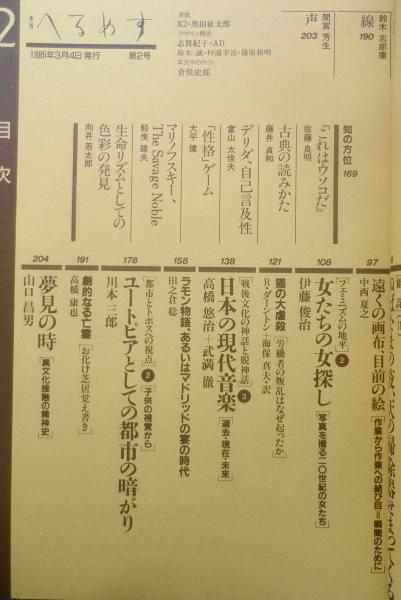 鈴木 志郎康
線
190
間宮 芳生
声
203
表紙
K2・黒田征太郎
デザイン構成
志賀紀子・AD
鈴木 誠・杉浦幸治・篠原和明
本文中のカット
倉俣史郎
季刊
へるめす
1985年3月4日 発行
第2号
2
目次
知の方位
169
『これはウソコだ』
佐藤 良明
古典の読みかた
藤井 貞和
デリダ、自己言及性
富山 太佳夫
「性格」ゲーム
大平 健
マリノフスキー、
The Savage Noble
船曳 建夫
生命リズムとしての
色彩の発見
向井 周太郎
97
遠くの画布、目前の絵
[作業から作業への結び目=瞬間のために]
中西 夏之
108
[フェミニズムの地平]❷
女たちの女探し
[写真を撮る二〇世紀の女たち]
伊藤 俊治
121
猫の大虐殺
[労働者の叛乱はなぜ起ったか]
R・ダーントン+海保 真夫・訳
138
[戦後文化の神話と脱神話]❸
日本の現代音楽
[過去・現在・未来]
高橋 悠治+武満 徹
158
ラモン物語、あるいはマドリッドの宴の時代
田之倉 稔
178
[都市とトポスへの視点]❷
[子供の視覚から]
ユートピアとしての都市の暗がり
川本 三郎
191
劇的なる亡霊
[お化け芝居覚え書き]
高橋 康也
204
夢見の時
[異文化接触の精神史]
山口 昌男